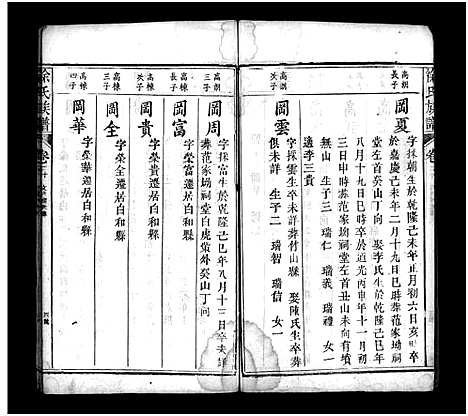 徐氏族譜
高朗長子
岡夏
字採朝生於乾隆己未年正月初六日亥時卒
於嘉慶己未年二月十九日巳時葬范家坳祠
堂左首癸山丁向 娶李氏生於乾隆己
八月十九日 時卒於道光丙午年十一月初
三日申時葬范家坳祠堂左首丑山未向有墳
無山 生子三 瑞仁 瑞義 瑞禮 女一
適李三貴
高朗次子
岡雲
字採雲生卒未詳葬竹山縣 娶陳氏生卒葬
俱未詳 生子二 瑞智 瑞信 女一
高朗三子
岡周
字採 生於乾隆己巳年八月十三日卒
葬范家坳祠堂白虎策外癸山丁向
高棟長子
岡富
字榮富遷居白和縣
高棟次子
岡貴
字榮貴遷居白和縣
高棟三子
岡全
字榮全遷居白和縣
高棟四子
岡華
字榮華遷居白和縣
徐氏族譜
卷